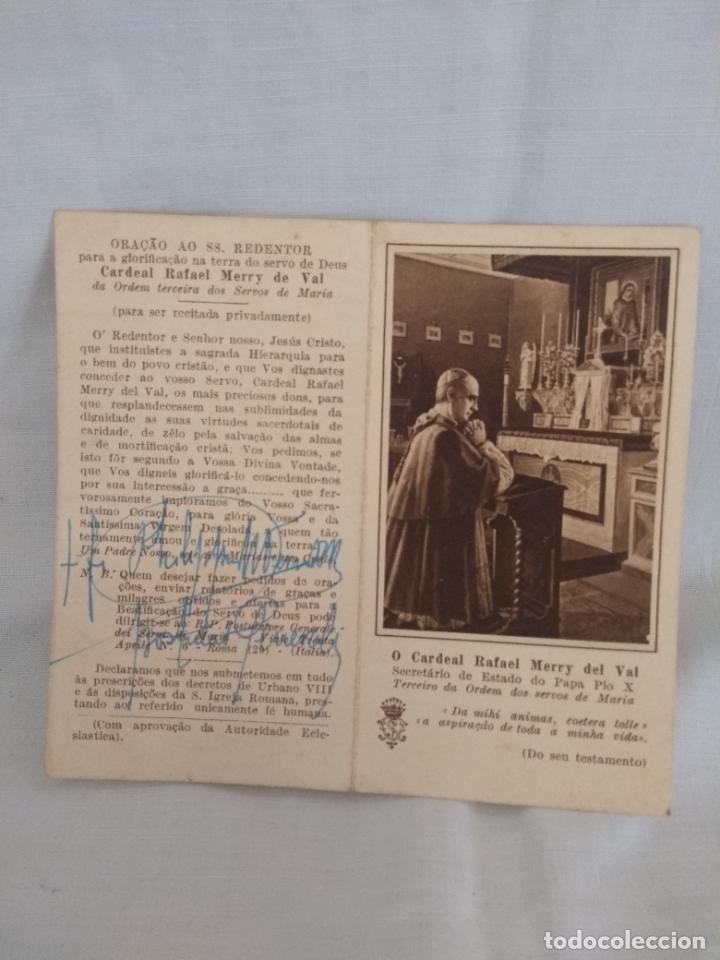 ORAÇÃO AO SS. REDENTOR
para a glorificação na terra do servo de Deus
Cardeal Rafael Merry de Val
da Ordem terceira dos Servos de Maria
(para ser recitada privadamente)
O' Redentor e Senhor nosso, Jesús Cristo,
que instituistes a sagrada Hierarquia para
o bem do povo cristão, e que Vos dignastes
conceder ao vosso Servo, Cardeal Rafael
Merry del Val, os mais preciosos dons, para
que resplandecessem nas sublimidades da
dignidade as suas virtudes sacerdotais de
caridade, de zêlo pela salvação das almas
e de mortificação cristã; Vos pedimos, se
isto fôr segundo a Vossa Divina Vontade,
que Vos digneis glorificá-lo concedendo-nos
por sua intercessão a graça......... que fer-
vorosamente imploramos do Vosso Sacra-
tissimo Coração, para glória Vossa e da
Santissima Virgem Desolada, a quem tão
ternamente amou e glorificou na terra
Um Padre Nosso,
N. B.º Quem desejar fazer pedidos de ora-
ções, enviar relatórios de graças e
milagres obtidos e ofertas para a
Beatificação do Servo de Deus pode
dirigir-se ao: R. P. Postulatore Generale
dei Servi di Maria - Viale Trenta
Aprile n. 6 - Roma (29) - (Italia).
Declaramos que nos submetemos em tudo
às prescrições dos decretos de Urbano VIII
e ás disposições da S. Igreja Romana, pres-
tando ao referido unicamente fé humana.
(Com aprovação da Autoridade Ecle-
siastica).
O Cardeal Rafael Merry del Val
Secretário de Estado do Papa Pio X
Terceiro da Ordem dos servos de Maria
«Da mihi animas, coetera tolle»
«a aspiração de toda a minha vida».
(Do seu testamento)
todocoleccion
todocoleccion.net